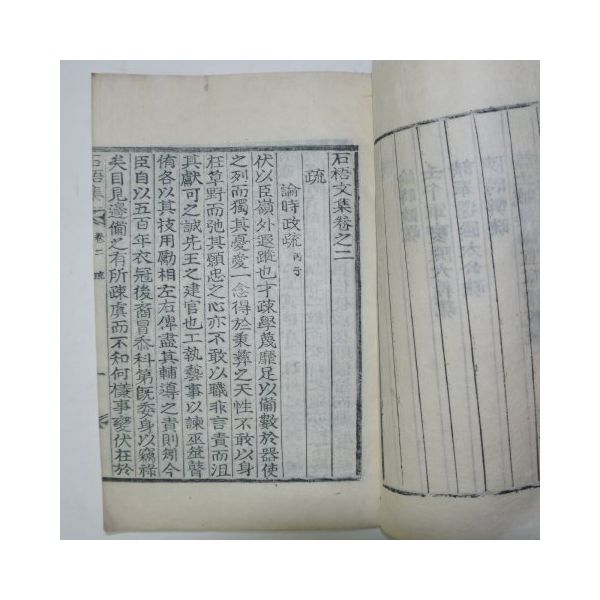 石梧文集卷之二
疏
論時政疏 丙子
伏以臣嶺外遐蹤也才疎學蔑靡足以備數於器使
之列而獨其憂愛一念得於秉彝之天性不敢以身
在草野而弛其願忠之心亦不敢以職非言責而沮
其獻可之誠先王之建官也工執藝事以諫巫筮瞽
侑各以其技用勵相左右俾盡其輔導之責則矧今
臣自以五百年衣冠後裔冒忝科第旣委身以竊祿
矣目見邊備之有所疎虞而不知何㨾事變伏在於
石梧集 卷二 疏 一